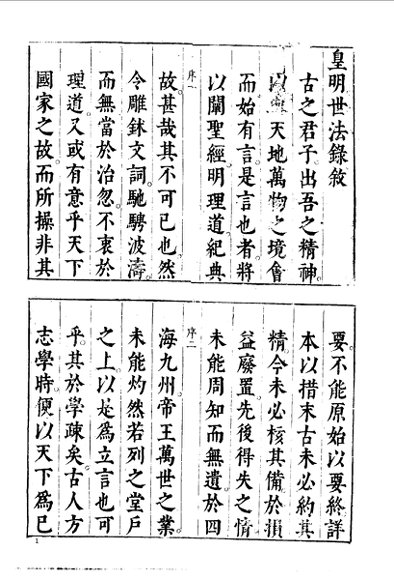 皇明世法錄敘
古之君子出吾之精神
天地萬物之境會
而始有言是言也者將
以闡聖經明理道紀典
序一
故甚哉其不可已也然
令雕鉥文詞馳騁波濤
而無當於治忽不衷於
理道又或有意乎天下
國家之故而所操非其
要不能原始以要終詳
本以措末古未必約其
精今未必核其備於損
益廢置先後得失之情
未能周知而無遺於四
序二
海九州帝王萬世之業
未能灼然若列之堂戶
之上以是爲立言也可
乎其於學疎矣古人方
志學時便以天下爲已
1